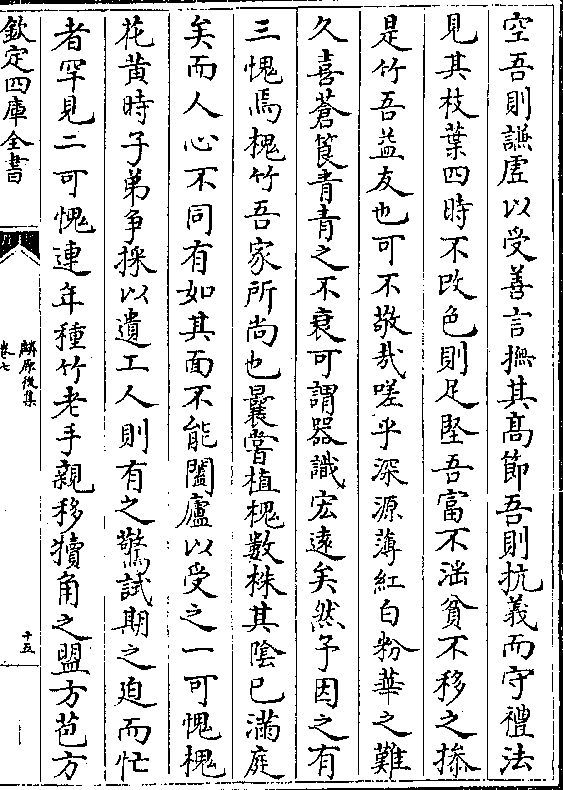 空吾則謙虛以受善言撫其髙節吾則抗義而守禮法
見其枝葉四時不改色則足堅吾富不淫貧不移之操
是竹吾益友也可不敬哉嗟乎深源薄紅白粉華之難
久喜蒼筤青青之不衰可謂器識宏遠矣然予因之有
三愧焉槐竹吾家所尚也曩嘗植槐數株其陰已滿庭
矣而人心不同有如其面不能闔廬以受之一可愧槐
花黄時子弟爭採以遺工人則有之驚試期之迫而忙
者罕見二可愧連年種竹老手親移犢角之盟方苞方
欽定四庫全書
麟原後集
卷七
十五